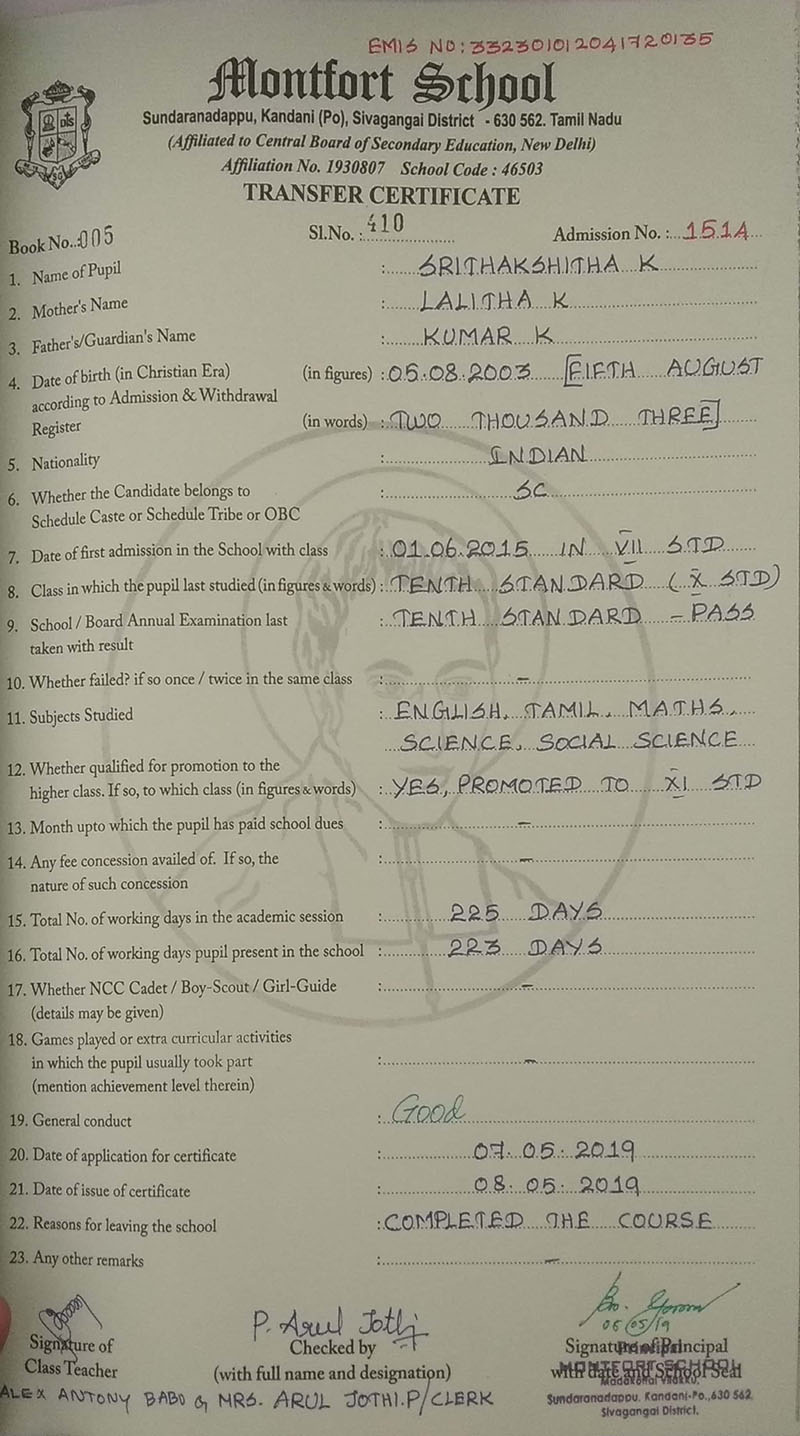 EMIS NO: 332301012041720135
Montfort School
Sundaranadappu, Kandani (Po), Sivagangai District - 630 562. Tamil Nadu
(Affiliated to Central Board of Secondary Education, New Delhi)
Affiliation No. 1930807 School Code : 46503
TRANSFER CERTIFICATE
Book No.:005 Sl.No. : 410 Admission No. : 1514
1. Name of Pupil : SRITHAKSHITHA K
2. Mother's Name : LALITHA K
3. Father's/Guardian's Name : KUMAR K
4. Date of birth (in Christian Era) (in figures) : 05.08.2003 [FIFTH AUGUST
according to Admission & Withdrawal
Register (in words) : TWO THOUSAND THREE]
5. Nationality : INDIAN
6. Whether the Candidate belongs to : SC
Schedule Caste or Schedule Tribe or OBC
7. Date of first admission in the School with class : 01.06.2015 IN VII STD
8. Class in which the pupil last studied (in figures & words) : TENTH STANDARD (X STD)
9. School / Board Annual Examination last : TENTH STANDARD - PASS
taken with result
10. Whether failed? if so once / twice in the same class : -
11. Subjects Studied : ENGLISH, TAMIL, MATHS,
SCIENCE, SOCIAL SCIENCE
12. Whether qualified for promotion to the
higher class. If so, to which class (in figures & words) : YES, PROMOTED TO XI STD
13. Month upto which the pupil has paid school dues : -
14. Any fee concession availed of. If so, the : -
nature of such concession
15. Total No. of working days in the academic session : 225 DAYS
16. Total No. of working days pupil present in the school : 223 DAYS
17. Whether NCC Cadet / Boy-Scout / Girl-Guide : -
(details may be given)
18. Games played or extra curricular activities
in which the pupil usually took part : -
(mention achievement level therein)
19. General conduct : Good
20. Date of application for certificate : 07.05.2019
21. Date of issue of certificate : 08.05.2019
22. Reasons for leaving the school : COMPLETED THE COURSE
23. Any other remarks : -
P. Arul Jothi
08/05/19
Signature of Checked by Signature of Principal
Class Teacher (with full name and designation) with date and School Seal
MONTFORT SCHOOL
ALEX ANTONY BABU G MRS. ARUL JOTHI.P/CLERK
Sundaranadappu, Kandani-Po.,630 562
Sivagangai District.